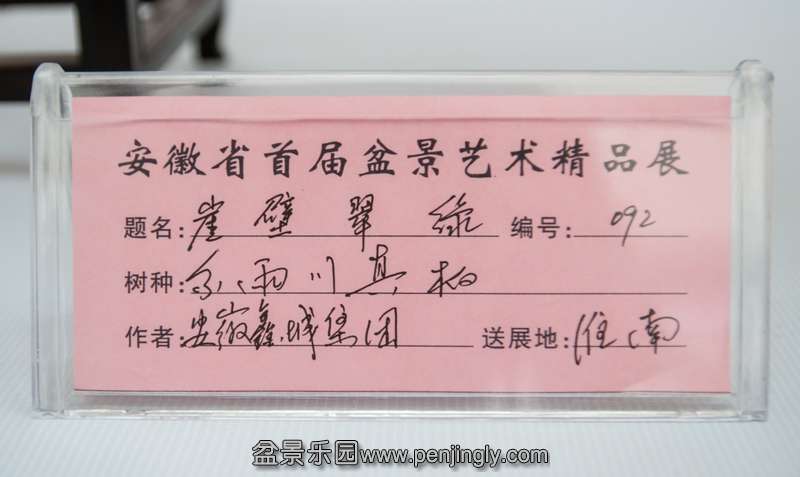 安徽省首届盆景艺术精品展
题名：崖壁翠绿 编号：092
树种：糸雨川真柏
作者：安徽鑫城集团 送展地：淮南
盆景乐园www.penjingly.com